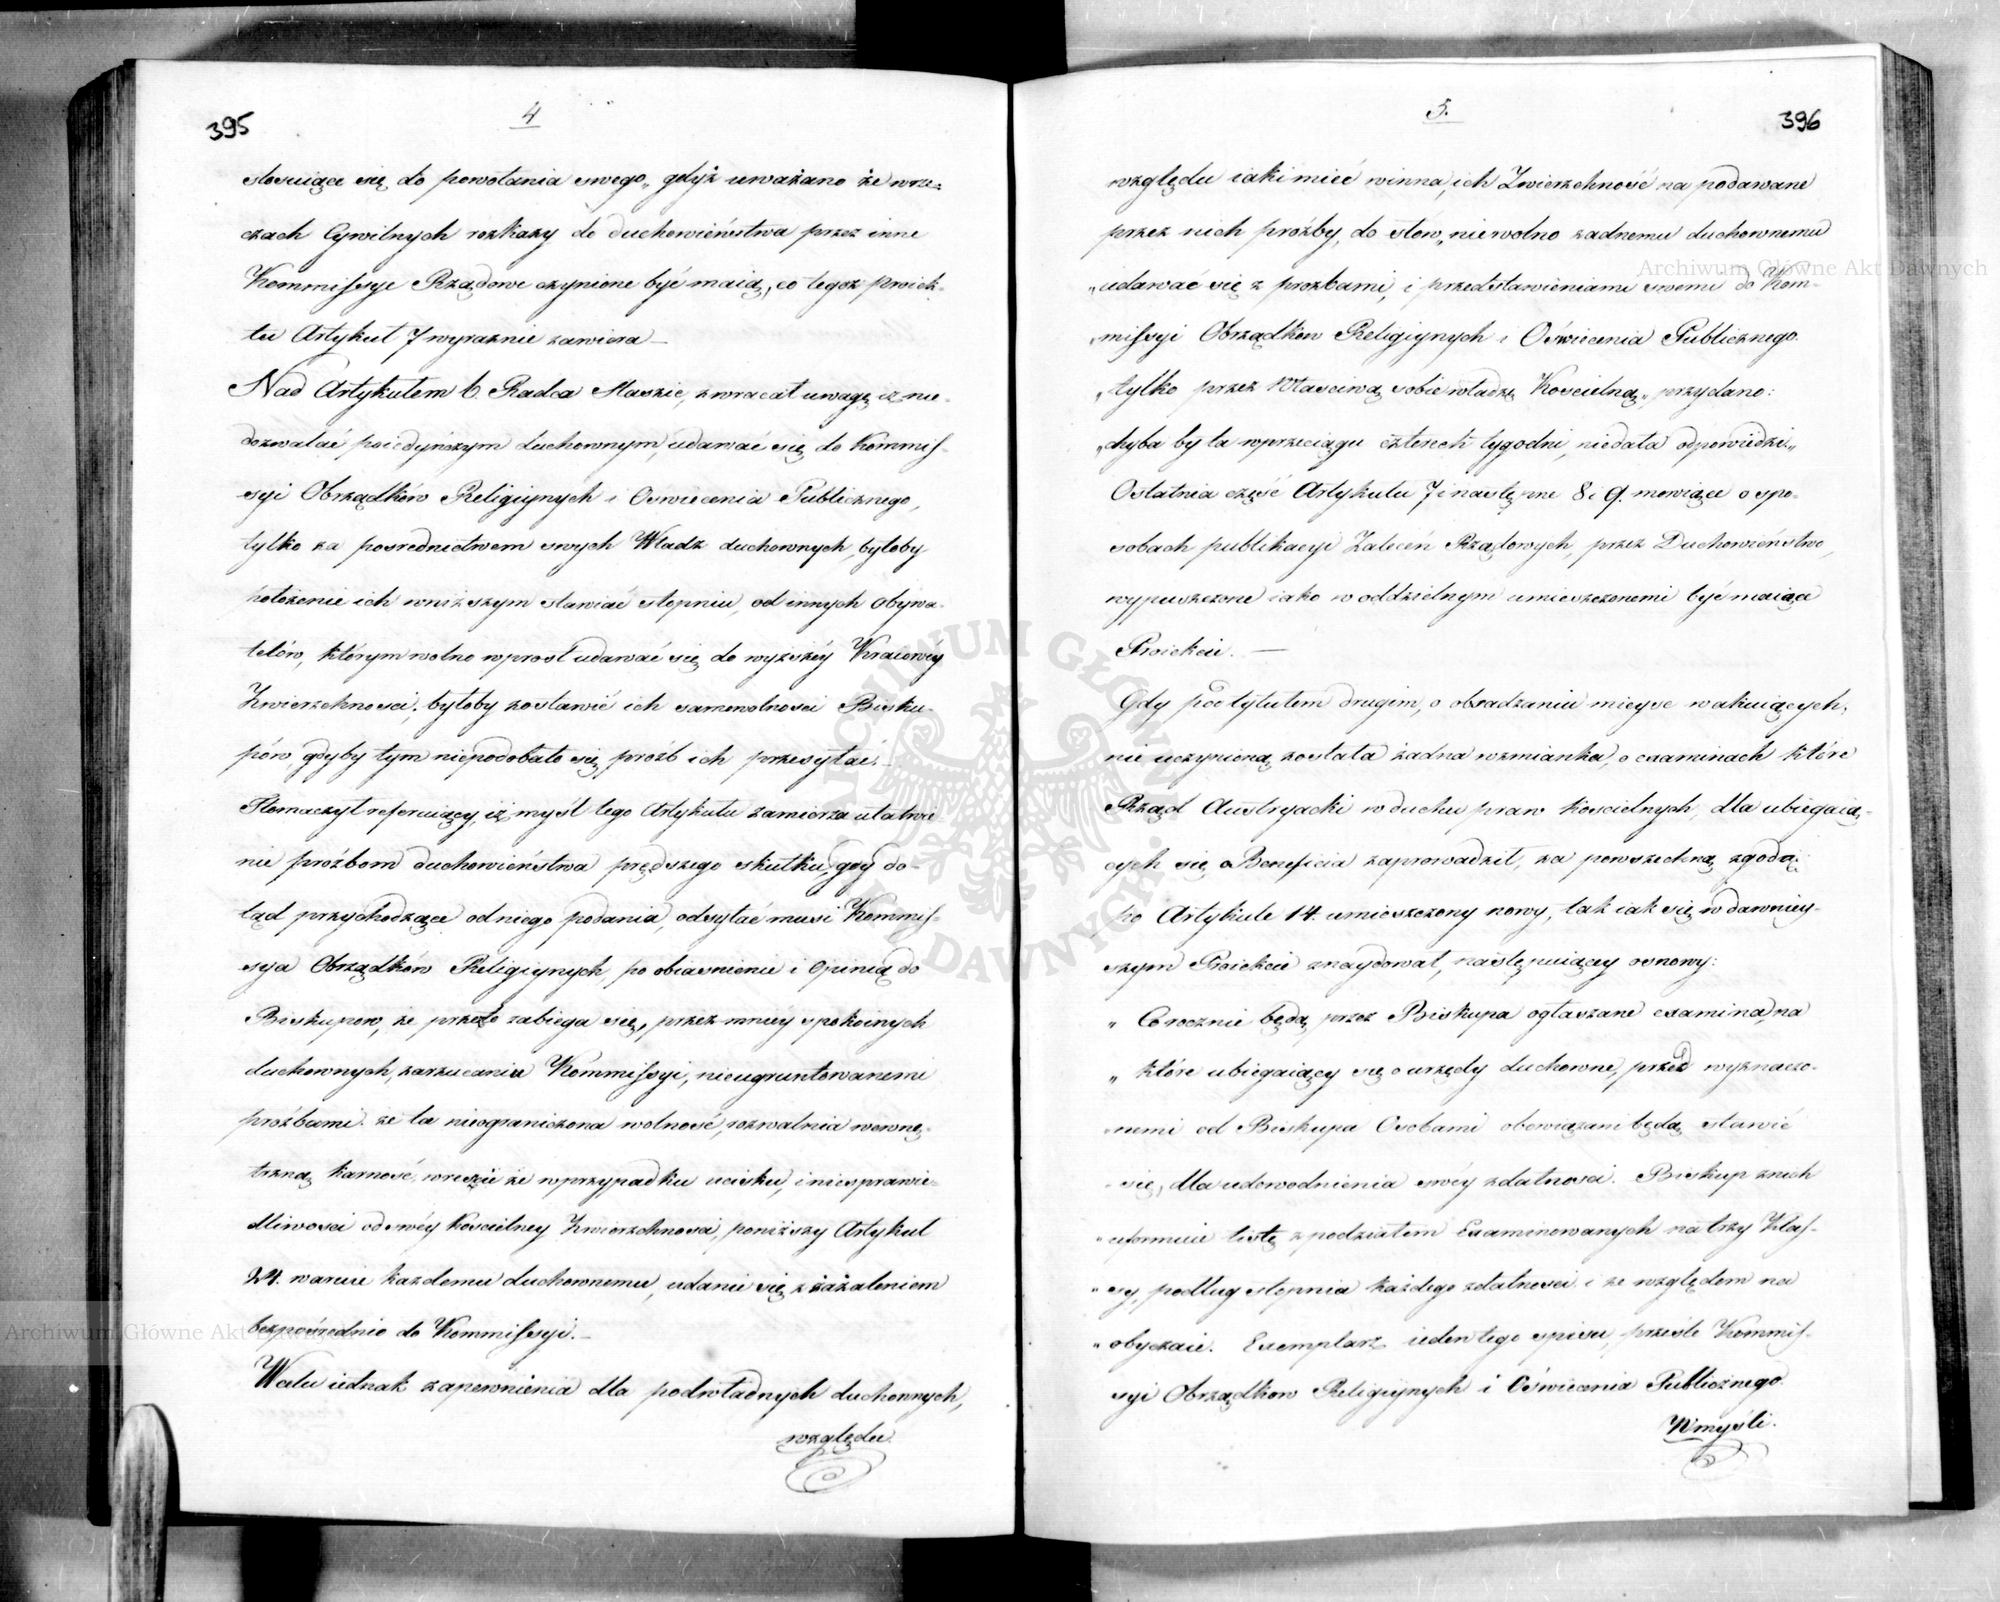 395
4
stosuiące się do powołania swego„ gdyż uważano że wrze-
czach Cywilnych rozkazy do duchowieństwa przez inne
Kommissye Rządowe czynione być maią, co tegoż proiek-
tu Artykuł 7 wyraznie zawiera —
Nad Artykułem 6. Radca Staszic, zwracał uwagę iż nie-
dozwalać poiedyńczym duchownym, udawać się do Kommis-
syi Obrządków Religiynych i Oswiecenia Publicznego,
tylko za posrednictwem swych Władz duchownych, byłoby
położenie ich wniższym stawiać stopniu, od innych obywa-
telów, którym wolno wprost udawać się do wyższéy Kraiowéy
Zwierzchnosci, byłoby zostawić ich samowolnosci Bisku-
pów, gdyby tym niepodobało się, prożb ich przesyłać. —
Tłomaczył referuiący, iż myśl tego Artykułu zamierza ułatwie-
nie proźbom duchowieństwa prędszego skutku, gdy do-
tąd przychodzące od niego podania, odsyłać musi Kommis-
sya Obrządków Religiynych, po obiasnienie i Opinią do
Biskupow, że przeto zabiega się, przez mniéy spokoinych
duchownych, zarzucania Kommissyi, nieugruntowanemi
proźbami. że ta nieograniczona wolność, rozwalnia wewnę-
trzną karność, wreszcie że wprzypadku ucisku, i niesprawie-
dliwosci od swéy Koscielney Zwierzchnosci, poniższy Artykuł
24. waruie kazdemu duchownemu, udanie się z zażaleniem
bezpośrednio do Kommissyi. —
Wcelu iednak zapewnienia dla podwładnych duchownych,
względu.
5.
396
względu iaki mieć winna, ich Zwierzchność na podawane
przez nich proźby, do słow, „niewolno zadnemu duchownemu
„udawać się z prozbami, i przedstawieniami swemi do Kom-
„missyi Obrządkow Religiynych i Oświecenia Publicznego.
„tylko przez Właściwą sobie władzę Koscielną„ przydano:
„chyba by ta wprzeciągu czterech tygodni, niedała odpowiedzi.„
Ostatnia część Artykułu 7 i następne 8 i 9. mowiące o spo-
sobach publikacyi Zaleceń Rządowych, przez Duchowieństwo,
wypuszczone iako w oddzielnym umieszczonemi być maiące
Proiekcie. —
Gdy pod tytułem drugim, o obsadzaniu mieysc wakuiących,
nie uczynioną została żadna wzmianka, o examinach które
Rząd Austryacki w duchu praw koscielnych, dla ubiegaią-
cych się o Beneficia zaprowadził, za powszechną zgodą,
po Artykule 14. umieszczony nowy, tak iak się w dawniey-
szym Proiekcie znaydował, następuiący osnowy:
„ Corocznie będą przez Biskupa ogłaszane examina, na
„ które ubiegaiący się o urzędy duchowne, przed wyznaczo-
„nemi od Biskupa Osobami obowiązani będą stawić
„się, dla udowodnienia swéy zdatnosci. Biskup znich
„uformuie listę z podziałem Examinowanych na trzy Klas-
„sy, podług stopnia każdego zdatnosci i ze względem na
„obyczaie. Exemplarz ieden tego spisu, prześle Kommis-
syi Obrządkow Religiynych i Oświecenia Publicznego.
Wmyśli.
Archiwum Główne Akt Dawnych
Archiwum Główne Akt Dawnych
ARCHIWUM GŁÓWNE AKT DAWNYCH